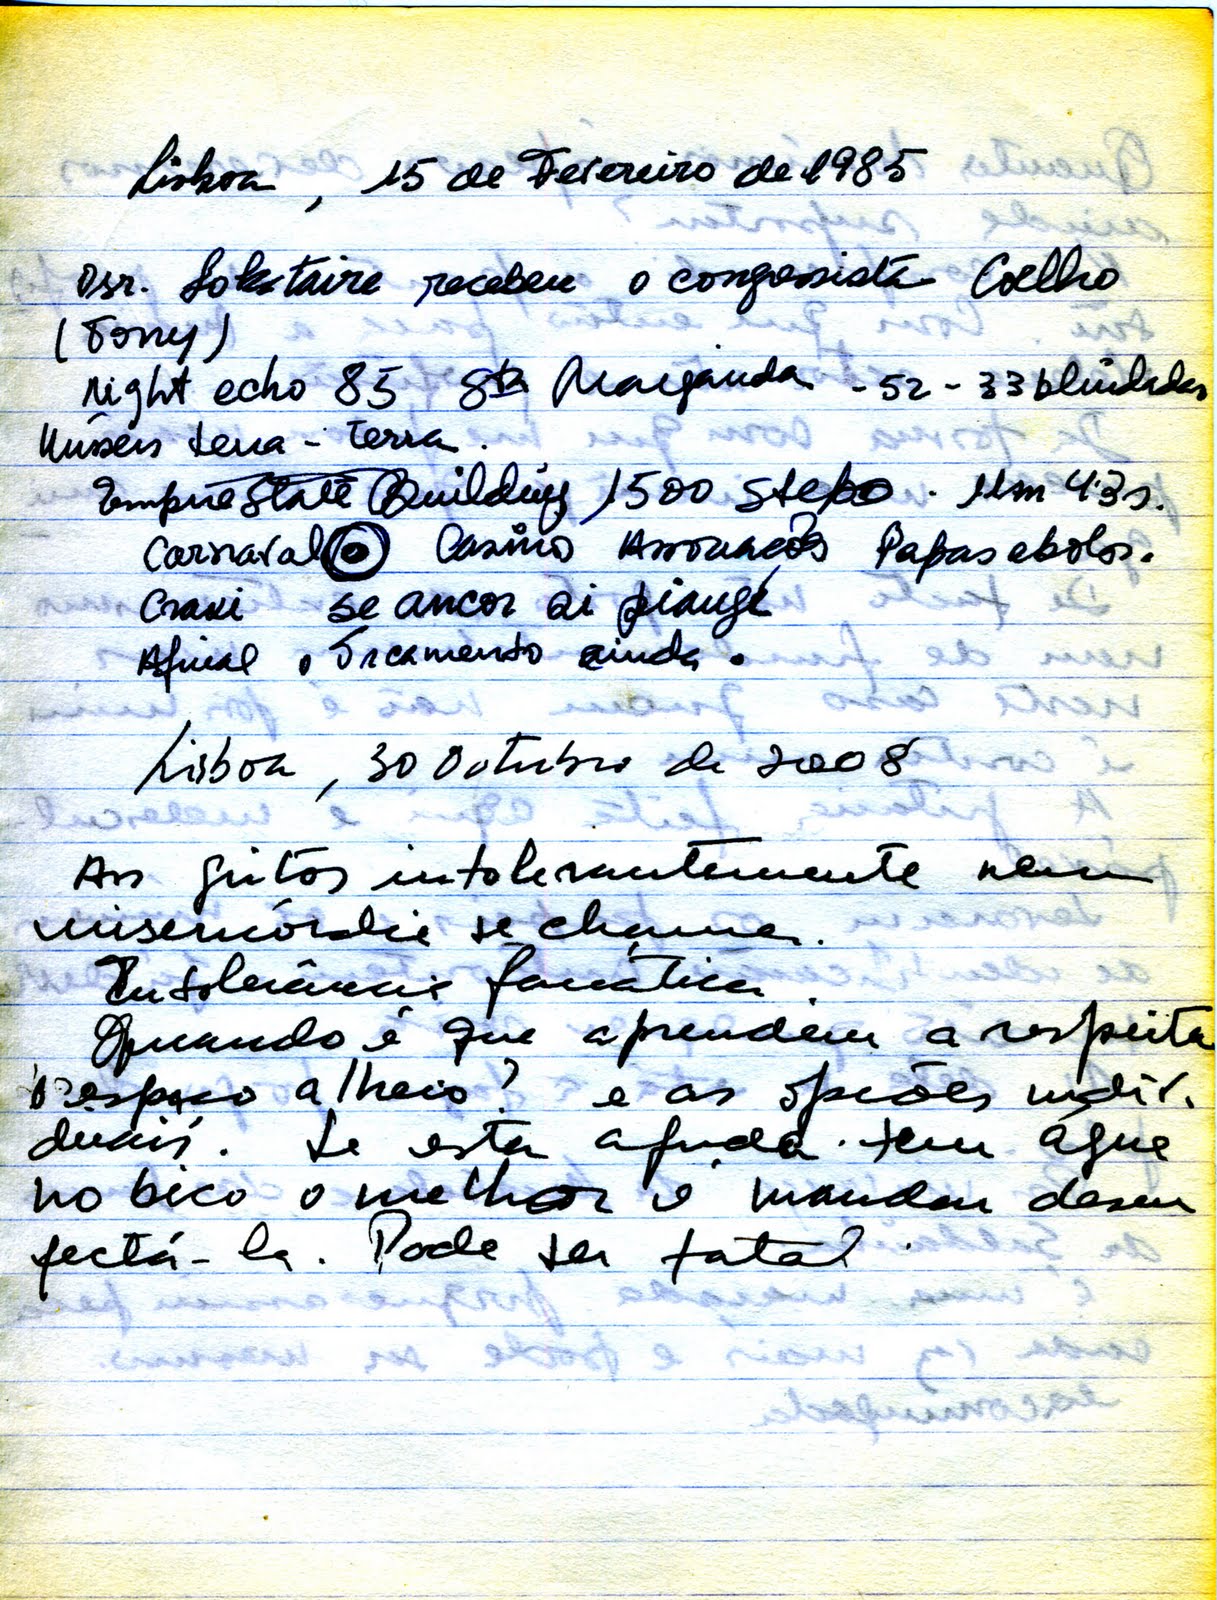 Lisboa, 15 de Fevereiro de 1985
O sr. recebeu o congressista Coelho
(Tony)
Night echo 85 8th - 52 - 33 blindadas
Mísseis terra - terra.
Empire State Building 1500 steps. 11m 43s.
Carnaval Casino Papas e bolos.
Craxi se ancor di piangi
Afinal o Orçamento ainda.
Lisboa, 30 Outubro de 2008
Aos gritos intolerantemente nem
misericórdia se chama.
Intolerância fanática.
Quando é que aprendem a respeita
o espaço alheio? e as opções indivi
duais. Se esta ajuda tem água
no bico o melhor é mandar desin
fectá-la. Pode ser fatal.